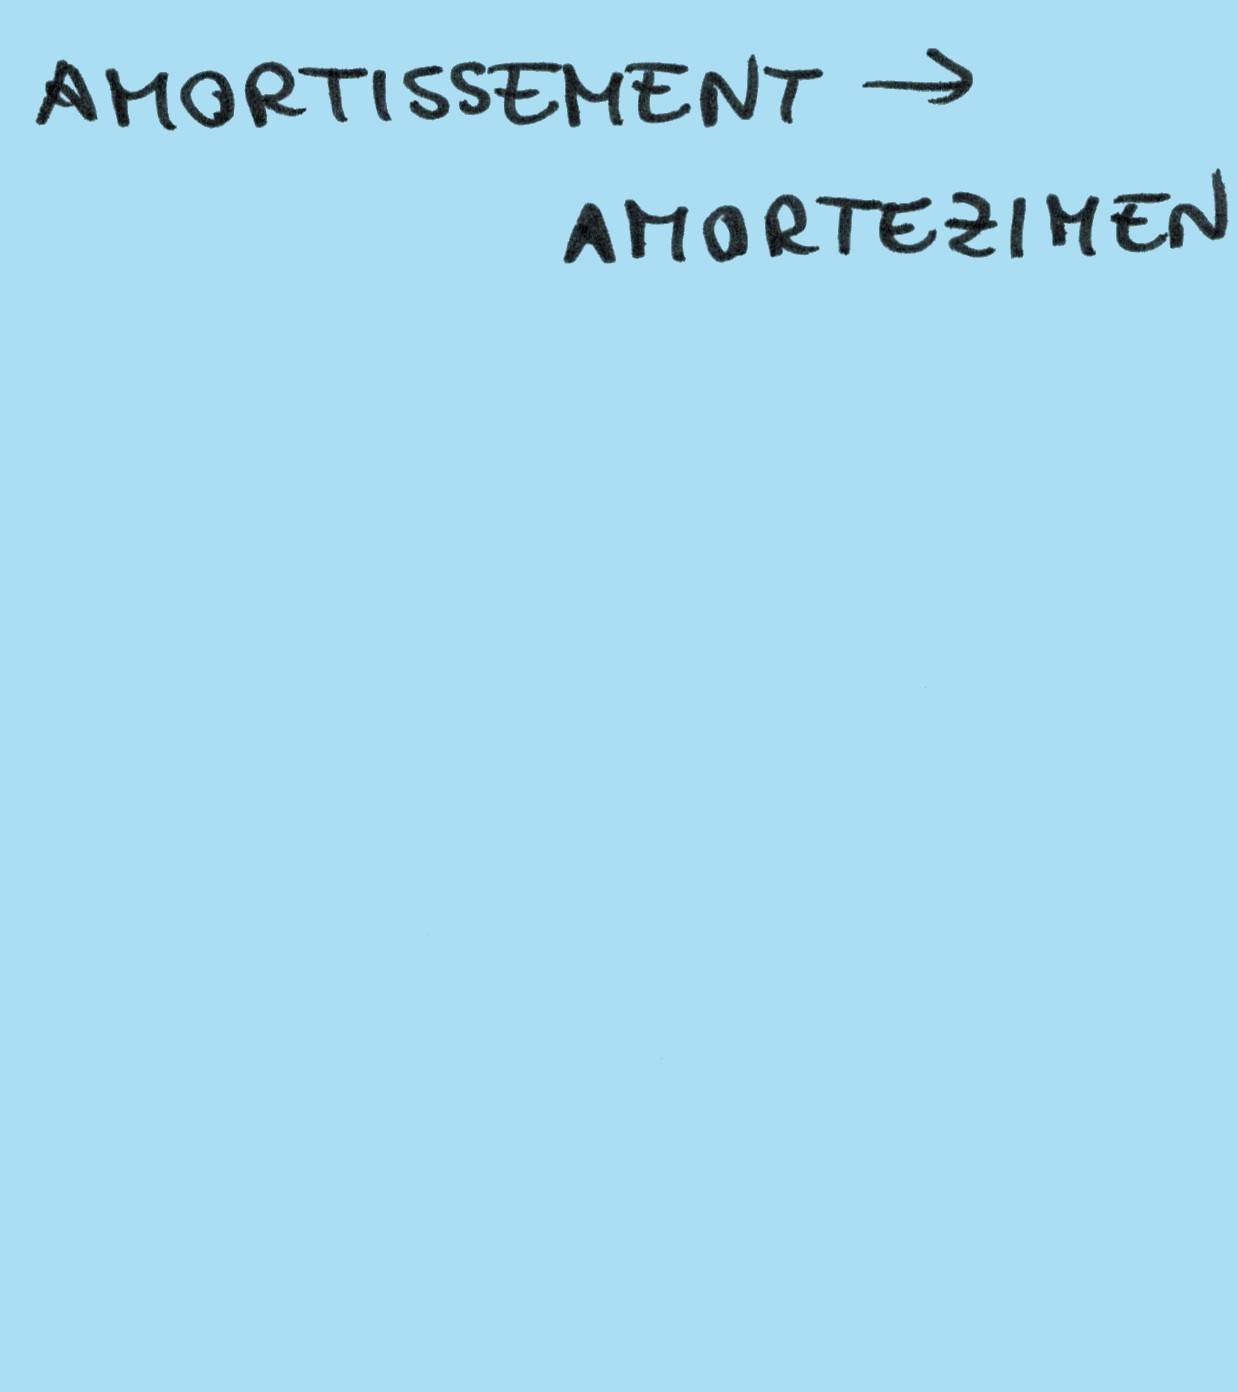 AMORTISSEMENT →
AMORTEZIMEN